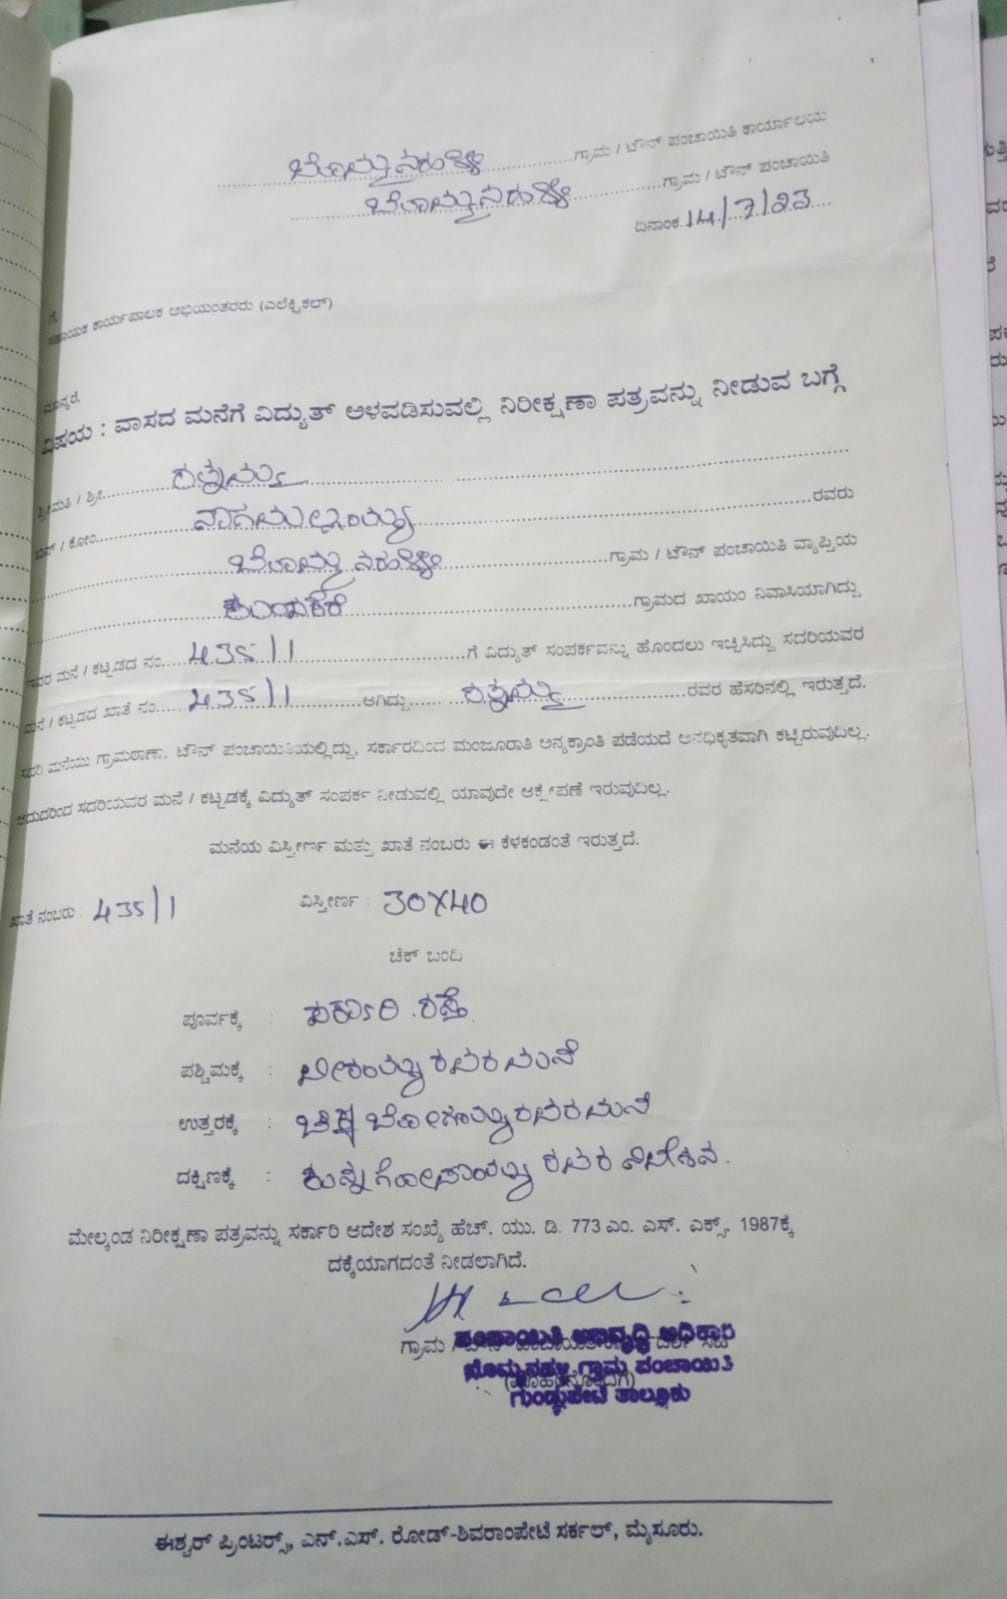 ಬೊಮ್ಮನಹಳ್ಳಿ ಗ್ರಾಮ / ಟೌನ್ ಪಂಚಾಯಿತಿ ಕಾರ್ಯಾಲಯ
ಬೊಮ್ಮನಹಳ್ಳಿ ಗ್ರಾಮ / ಟೌನ್ ಪಂಚಾಯಿತಿ
ದಿನಾಂಕ 14/7/23
ಗೆ,
ಸಹಾಯಕ ಕಾರ್ಯಪಾಲಕ ಅಭಿಯಂತರರು (ಎಲೆಕ್ಟ್ರಿಕಲ್)
ಮಾನ್ಯರೆ,
ವಿಷಯ : ವಾಸದ ಮನೆಗೆ ವಿದ್ಯುತ್ ಅಳವಡಿಸುವಲ್ಲಿ ನಿರೀಕ್ಷಣಾ ಪತ್ರವನ್ನು ನೀಡುವ ಬಗ್ಗೆ
ಶ್ರೀಮತಿ / ಶ್ರೀ ರತ್ನಮ್ಮ
ಬಿನ್ / ಕೋಂ ನಾಗಮಲ್ಲಯ್ಯ ರವರು
ಬೊಮ್ಮನಹಳ್ಳಿ ಗ್ರಾಮ / ಟೌನ್ ಪಂಚಾಯಿತಿ ವ್ಯಾಪ್ತಿಯ
ಗ್ರಾಮದ ಖಾಯಂ ನಿವಾಸಿಯಾಗಿದ್ದು
ಇವರ ಮನೆ / ಕಟ್ಟಡದ ನಂ. 435/1 ಗೆ ವಿದ್ಯುತ್ ಸಂಪರ್ಕವನ್ನು ಹೊಂದಲು ಇಚ್ಛಿಸಿದ್ದು ಸದರಿಯವರ
ಮನೆ / ಕಟ್ಟಡದ ಖಾತೆ ನಂ. 435/1 ಆಗಿದ್ದು ರತ್ನಮ್ಮ ರವರ ಹೆಸರಿನಲ್ಲಿ ಇರುತ್ತದೆ.
ಸದರಿ ಮನೆಯು ಗ್ರಾಮಠಾಣಾ, ಟೌನ್ ಪಂಚಾಯಿತಿಯಲ್ಲಿದ್ದು, ಸರ್ಕಾರದಿಂದ ಮಂಜೂರಾತಿ ಅನ್ಯಕ್ರಾಂತಿ ಪಡೆಯದೆ ಅನಧಿಕೃತವಾಗಿ ಕಟ್ಟಿರುವುದಿಲ್ಲ.
ಆದುದರಿಂದ ಸದರಿಯವರ ಮನೆ / ಕಟ್ಟಡಕ್ಕೆ ವಿದ್ಯುತ್ ಸಂಪರ್ಕ ನೀಡುವಲ್ಲಿ ಯಾವುದೇ ಆಕ್ಷೇಪಣೆ ಇರುವುದಿಲ್ಲ.
ಮನೆಯ ವಿಸ್ತೀರ್ಣ ಮತ್ತು ಖಾತೆ ನಂಬರು ಈ ಕೆಳಕಂಡಂತೆ ಇರುತ್ತದೆ.
ಖಾತೆ ನಂಬರು : 435/1 ವಿಸ್ತೀರ್ಣ : 30X40
ಚೆಕ್ ಬಂದಿ
ಪೂರ್ವಕ್ಕೆ : ಸರ್ಕಾರಿ ರಸ್ತೆ.
ಪಶ್ಚಿಮಕ್ಕೆ : ಬೀರಯ್ಯ ರವರ ಮನೆ
ಉತ್ತರಕ್ಕೆ : ಚಿಕ್ಕ ಬೋಗಯ್ಯ ರವರ ಮನೆ
ದಕ್ಷಿಣಕ್ಕೆ : ರವರ ನಿವೇಶನ.
ಮೇಲ್ಕಂಡ ನಿರೀಕ್ಷಣಾ ಪತ್ರವನ್ನು ಸರ್ಕಾರಿ ಆದೇಶ ಸಂಖ್ಯೆ ಹೆಚ್. ಯು. ಡಿ. 773 ಎಂ. ಎಸ್. ಎಕ್ಸ್. 1987ಕ್ಕೆ
ದಕ್ಕೆಯಾಗದಂತೆ ನೀಡಲಾಗಿದೆ.
ಗ್ರಾಮ /
ಪಂಚಾಯಿತಿ ಅಭಿವೃದ್ಧಿ ಅಧಿಕಾರಿ
ಬೊಮ್ಮನಹಳ್ಳಿ ಗ್ರಾಮ ಪಂಚಾಯಿತಿ
ಗುಂಡ್ಲುಪೇಟೆ ತಾಲ್ಲೂಕು
ಈಶ್ವರ್ ಪ್ರಿಂಟರ್ಸ್, ಎನ್.ಎಸ್. ರೋಡ್-ಶಿವರಾಂಪೇಟೆ ಸರ್ಕಲ್, ಮೈಸೂರು.